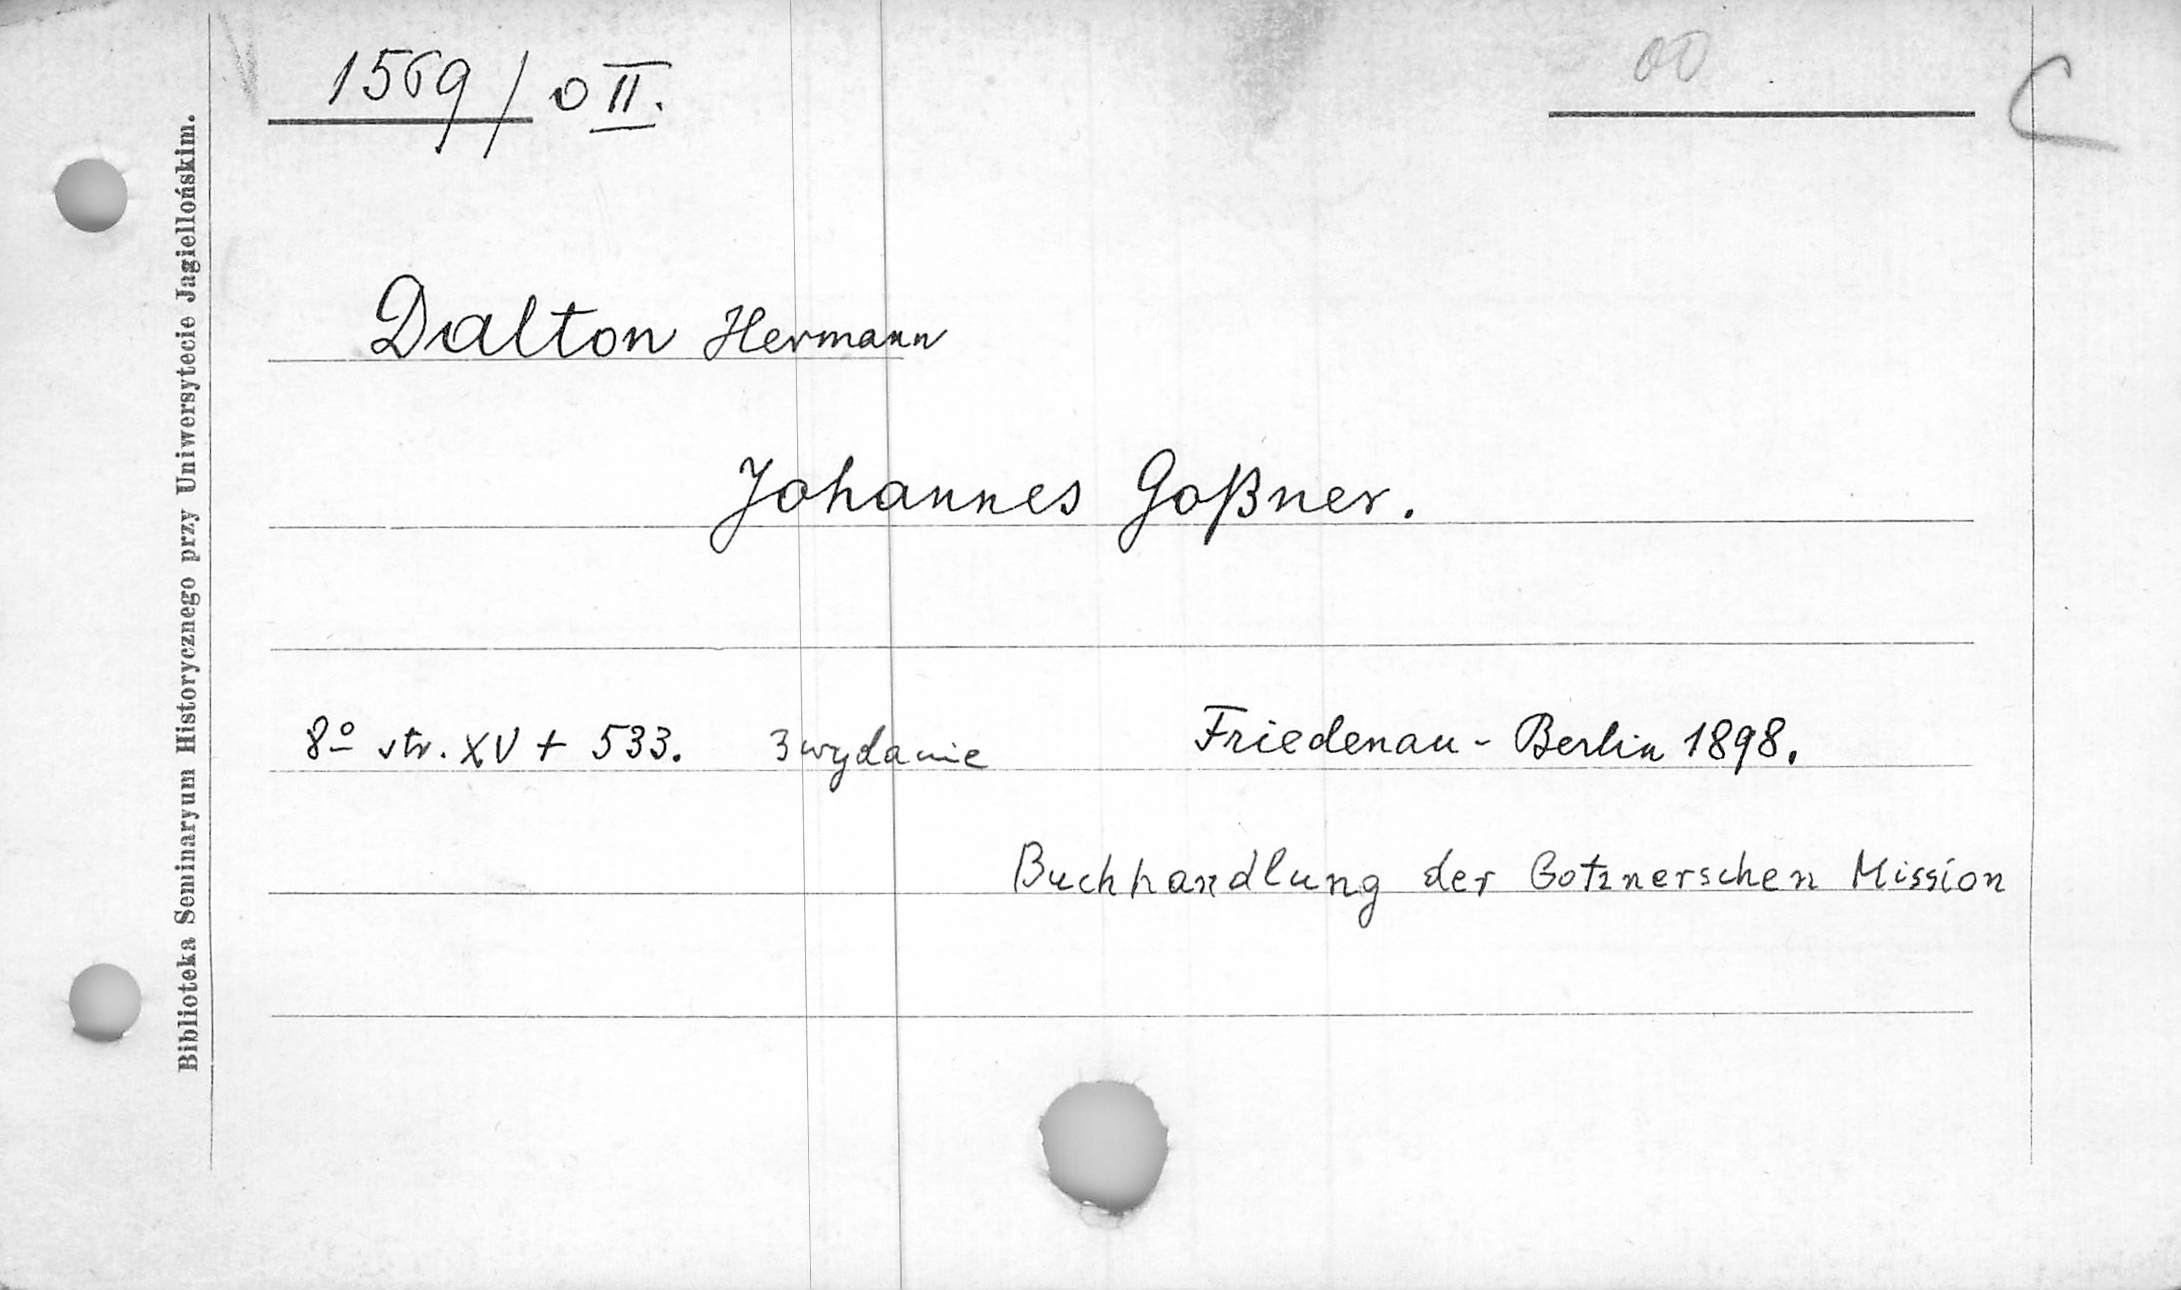 1569/0 II.
00
C
Dalton Hermann
Johannes Goßner.
8º str. XV + 533. 3 wydanie Friedenau - Berlin 1898.
Buchhandlung der Gotznerschen Mission
Biblioteka Seminaryun Historycznego przy Uniwersytecie Jagiellońskim.